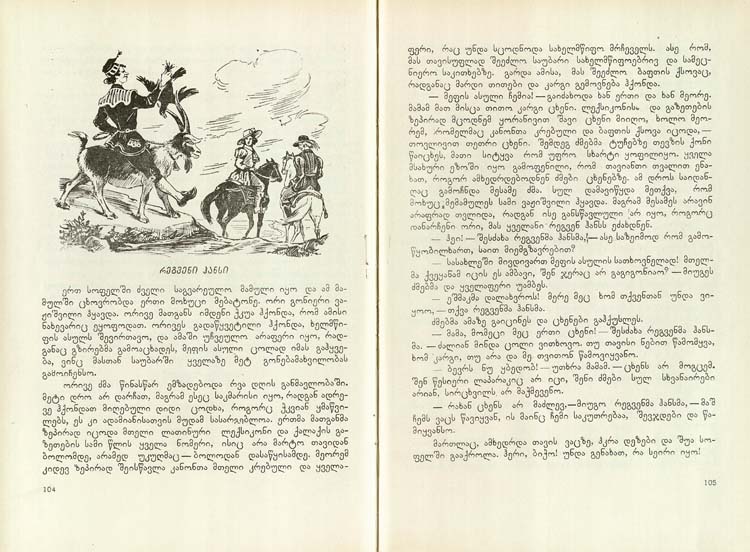 რეგვენი ჰანსი
ერთ სოფელში ძველი საგვარეულო მამული იყო და ამ მა-
მულში ცხოვრობდა ერთი მოხუცი მებატონე. ორი გონიერი ვა-
ჟიშვილი ჰყავდა. ორივე მათგანს იმდენი ჭკუა ჰქონდა, რომ ამისი
ნახევარიც ეყოფოდათ. ორივეს გადაწყვეტილი ჰქონდა, ხელმწი-
ფის ასულს შევირთავო, და ამაში უჩვეულო არაფერი იყო, რად-
განაც გზირებმა გამოაცხადეს, მეფის ასული ცოლად იმას გაჰყვე-
ბა, ვინც მასთან საუბარში ყველაზე მეტ გონებამახვილობას
გამოიჩენსო.
ორივე ძმა წინასწარ ემზადებოდა რვა დღის განმავლობაში.
მეტი დრო არ დარჩათ, მაგრამ ესეც საკმარისი იყო, რადგან ადრე-
ვე ჰქონდათ მიღებული დიდი ცოდნა, როგორც ჭკვიან ყმაწვი-
ლებს, ეს კი ადამიანისათვის მუდამ სასარგებლოა. ერთმა მათგანმა
ზეპირად იცოდა მთელი ლათინური ლექსიკონი და ქალაქის გა-
ზეთების სამი წლის ყველა ნომერი, ისიც არა მარტო თავიდან
ბოლომდე, არამედ უკუღმაც — ბოლოდან დასაწყისამდე. მეორემ
კიდევ ზეპირად შეისწავლა კანონთა მთელი კრებული და ყველა-
104
ფერი, რაც უნდა სცოდნოდა სახელმწიფო მრჩეველს. ასე რომ,
მას თავისუფლად შეეძლო საუბარი სახელმწიფოებრივ და სამეც-
ნიერო საკითხებზე. გარდა ამისა, მას შეეძლო ბაფთის ქსოვაც,
რადგანაც მარდი თითები და კარგი გემოვნება ჰქონდა.
— მეფის ასული ჩემია! — გაიძახოდა ხან ერთი და ხან მეორე.
მამამ მათ მისცა თითო კარგი ცხენი. ლექსიკონის და გაზეთების
ზეპირად მცოდნემ ყორანივით შავი ცხენი მიიღო, ხოლო მეო-
რემ, რომელმაც კანონთა კრებული და ბაფთის ქსოვა იცოდა, —
თოვლივით თეთრი ცხენი. შემდეგ ძმებმა ტუჩებზე თევზის ქონი
წაიცხეს, მათი სიტყვა რომ უფრო სხარტი ყოფილიყო. ყველა
მსახური ეზოში იყო გამოფენილი, რომ თავიანთი თვალით ენა-
ხათ, როგორ ამხედრდებოდნენ ძმები ცხენებზე. ამ დროს საიდან-
ღაც გამოჩნდა მესამე ძმა. სულ დამავიწყდა მეთქვა, რომ
მოხუც მემამულეს სამი ვაჟიშვილი ჰყავდა. მაგრამ მესამეს არავინ
არაფრად თვლიდა, რადგან ისე განსწავლული არ იყო, როგორც
დანარჩენი ორი, მას ყველანი რეგვენ ჰანსს ეძახდნენ.
— ჰეი! — შესძახა რეგვენმა ჰანსმა, — ასე საზეიმოდ რომ გამო-
წყობილხართ, საით მიემგზავრებით?
— სასახლეში მივდივართ მეფის ასულის სათხოვნელად! მთელ-
მა ქვეყანამ იცის ეს ამბავი, შენ ჯერაც არ გაგიგონიაო? — მიუგეს
ძმებმა და ყველაფერი უამბეს.
— ეშმაკმა დალახვროს! მერე მეც ხომ თქვენთან უნდა ვი-
ყოო, — თქვა რეგვენმა ჰანსმა.
ძმებმა ამაზე გაიცინეს და ცხენები გაჰქუსლეს.
— მამა, მომეცი მეც ერთი ცხენი! — შესძახა რეგვენმა ჰანს-
მა. — ძალიან მინდა ცოლი ვითხოვო. თუ თავისი ნებით წამომყვა,
ხომ კარგი, თუ არა და მე თვითონ წამოვიყვანო.
— ბევრს ნუ ყბედობ! — უთხრა მამამ. — ცხენს არ მოგცემ.
შენ წესიერი ლაპარაკიც არ იცი, შენი ძმები სულ სხვანაირები
არიან, სირცხვილს არ მაჭმევენო.
— რახან ცხენს არ მაძლევ, — მიუგო რეგვენმა ჰანსმა, — მაშ
ჩემს ვაცს წავიყვან, ის მაინც ჩემი საკუთრებაა, შევჯდები და წა-
მიყვანსო.
მართლაც, ამხედრდა თავის ვაცზე, ჰკრა დეზები და შუა სო-
ფელში გააქროლა. ჰერი, ბიჭო! უნდა გენახათ, რა სეირი იყო!
105